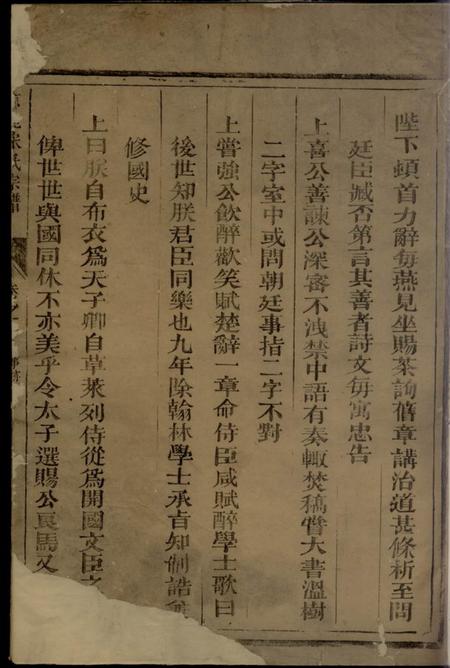 陛下頓首力辭每燕見坐賜茶詢舊章講治道甚條析至問
廷臣臧否第言其善者詩文每寓忠告
上喜公善諫公深審不洩禁中語有奏輙焚稿嘗大書溫樹
二字室中或問朝廷事指二字不對
上嘗強公飲醉歡笑賦楚辭一章命侍臣咸賦醉學士歌曰
後世知朕君臣同樂也九年除翰林學士承旨知制誥兼
修國史
上曰朕自布衣為天子卿自草萊列侍從為開國文臣之
俾世世與國同休不亦美乎令太子選賜公良馬又
宋氏宗譜
卷之一